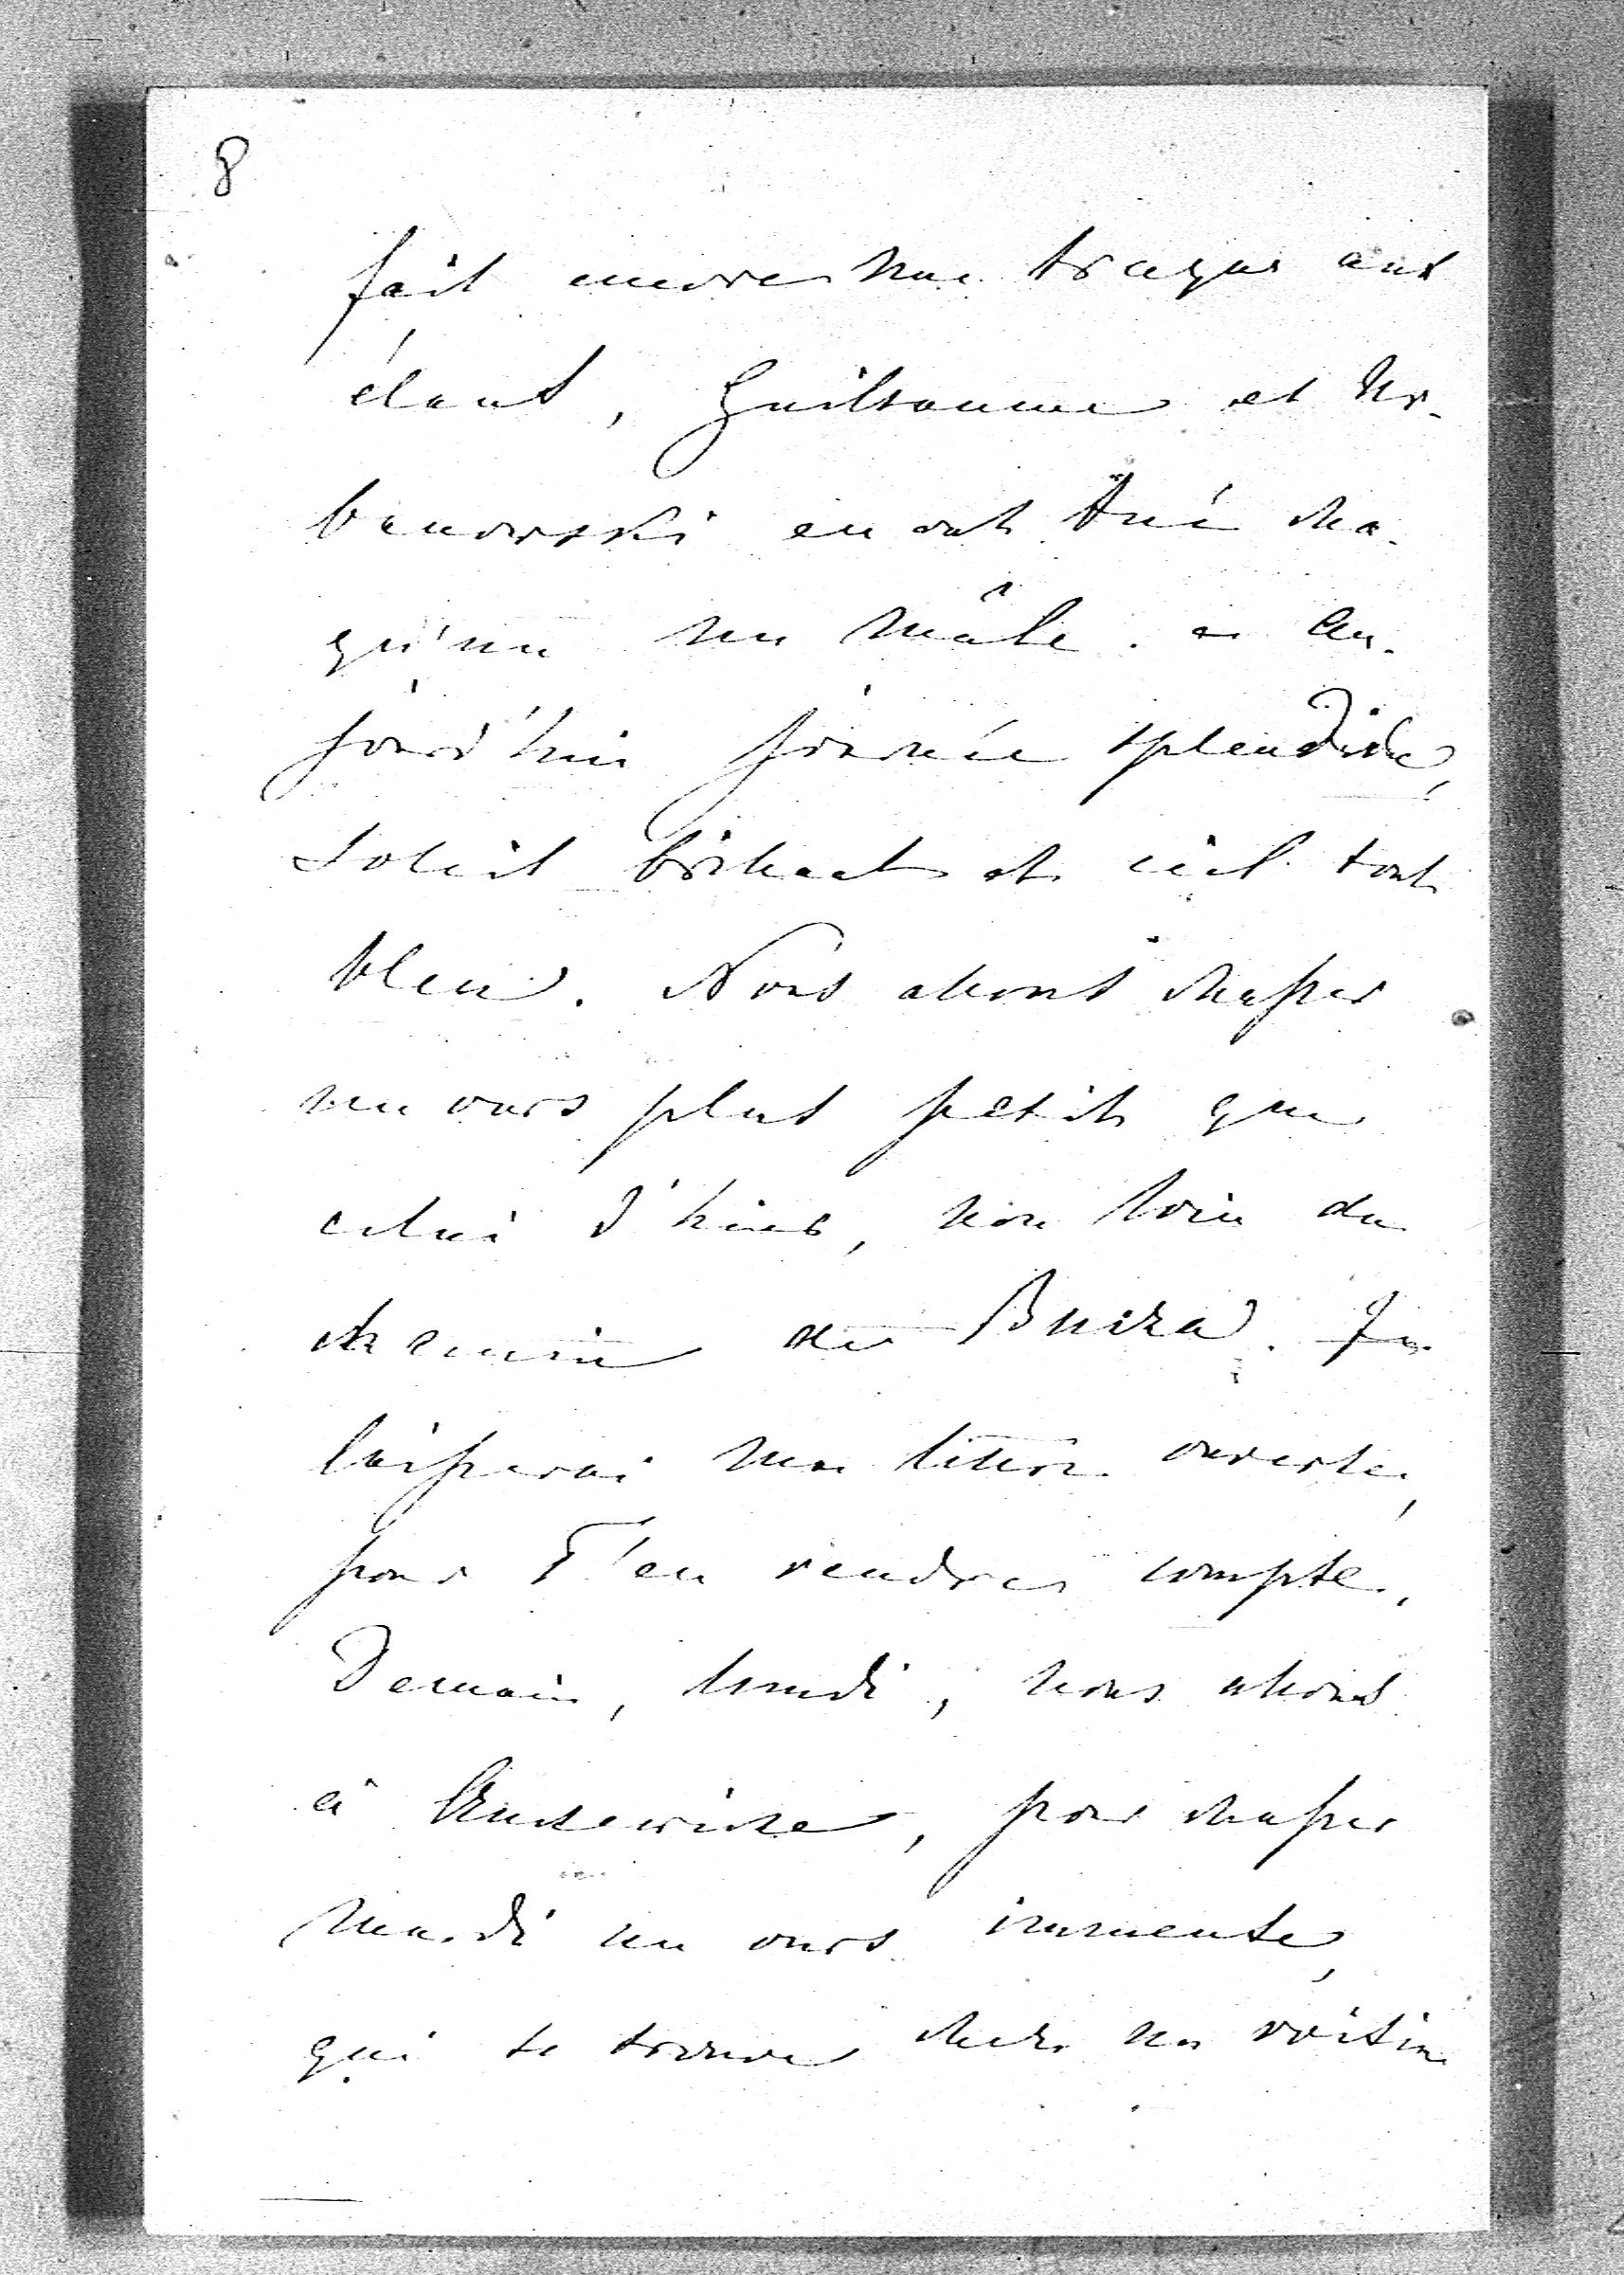 8
fait encore une traque aux
élans, Guillaume et Ur-
banowski en ont tué cha-
qu'un un mâle. - Au-
jourd'hui journée splendide,
soleil brilant et ciel tout
bleu. Nous allons chasser
un ours plus petit que
celui d'hier, non loin du
chemin de Buiza. Je
laisserai ma lettre ouverte,
pour T'en rendre compte.
Demain, lundi, nous allons
à pour chasser
mardi un ours immense,
qui se trouve chez un voisin